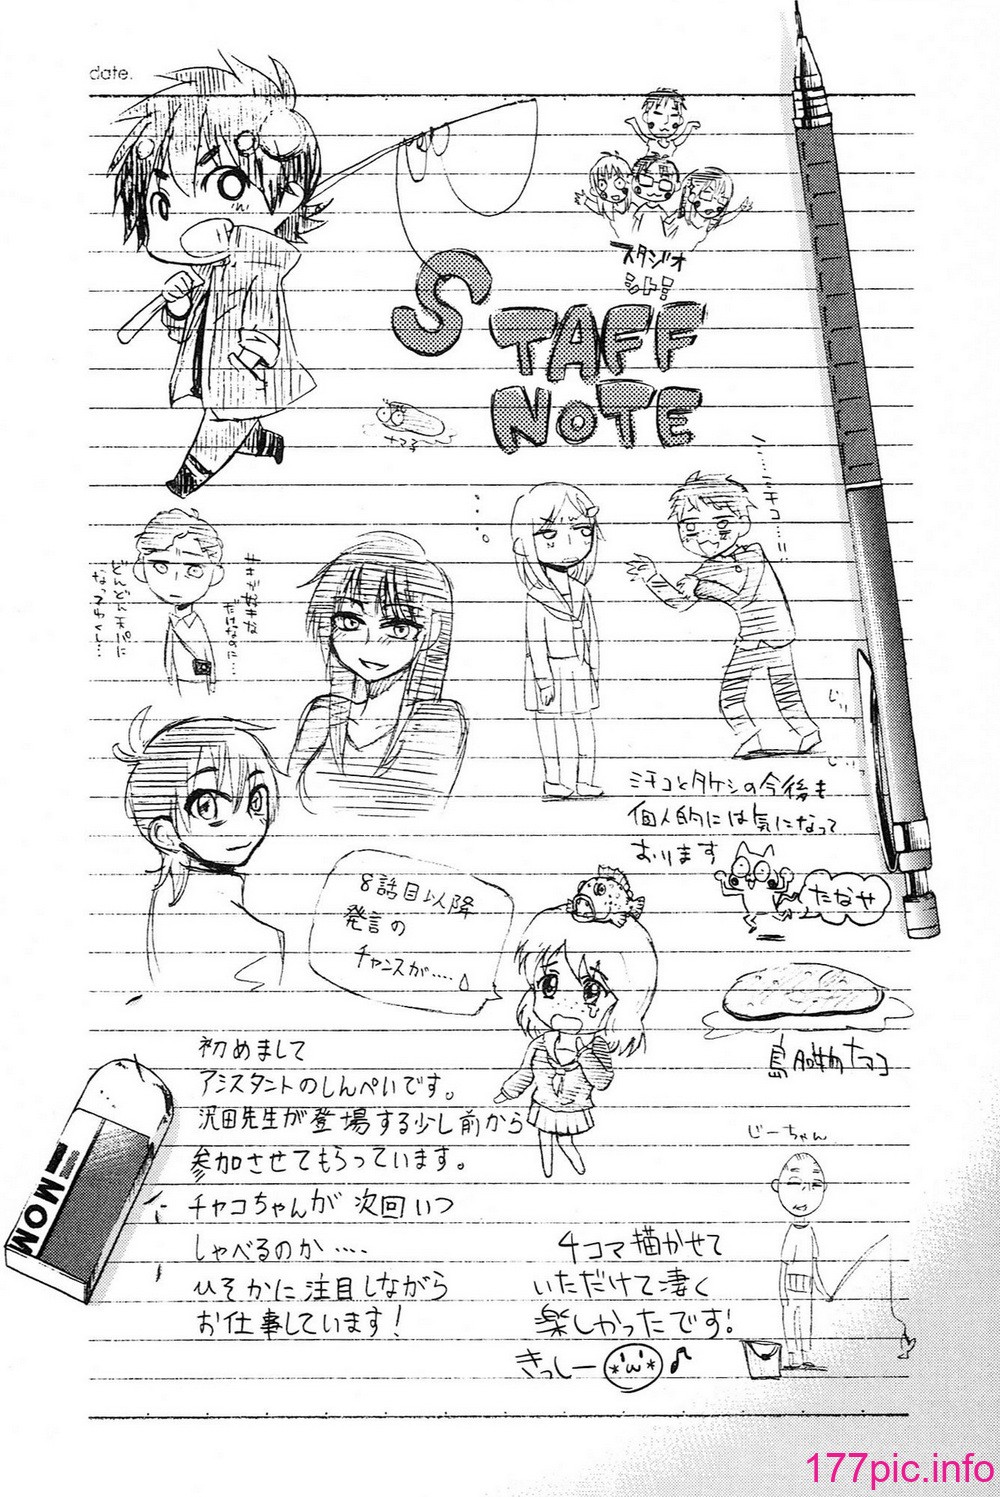 date.
スタジオ
シトミ
STAFF
NOTE
ナマ子
……ミチコ……!!
キキが好きな
だけなのに…
どんどん天パに
なってゆくし…
じぃぃ
じぃっ
ミチコとタケシの今後も
個人的には気になって
おります
たなや
8話目以降
発言の
チャンスが……
島の朧物ナマコ
初めまして
アシスタントのしんぺいです。
沢田先生が登場する少し前から
参加させてもらっています。
チャコちゃんが次回いつ
しゃべるのか……
ひそかに注目しながら
お仕事しています!
じーちゃん
4コマ描かせて
いただけて凄く
楽しかったです!
きっしー
MOM
177pic.info